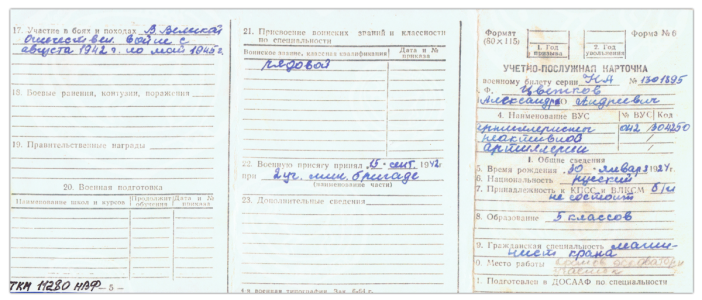 17. Участие в боях и походах В Великой
Отечествен. войне с
августа 1942 г. по май 1945 г.
18. Боевые ранения, контузии, поражения
19. Правительственные награды
20. Военная подготовка
Наименование школ и курсов
Продолжит. обучения
Дата и № приказа
ТКМ 11280 НВФ
— 5 —
21. Присвоение воинских званий и классности
по специальности
Воинское звание, классная квалификация
Дата и № приказа
рядовой
22. Военную присягу принял 15 сент. 1942
при 2 уч. мин. бригаде
(наименование части)
23. Дополнительные сведения
4-я военная типография. Зак.
Формат
(80×115)
Форма № 6
1. Год призыва
2. Год увольнения
УЧЕТНО-ПОСЛУЖНАЯ КАРТОЧКА
военному билету серии НА № 1301895
Ф. Цветков
Александр О. Андреевич
4. Наименование ВУС
№ ВУС
Код
реактивной
артиллерии
I. Общие сведения
5. Время рождения 30 января 1924 г.
6. Национальность русский
7. Принадлежность к КПСС и ВЛКСМ б/п
не состоит
8. Образование 5 классов
9. Гражданская специальность маши-
нист крана
0. Место работы
1. Подготовлен в ДОСААФ по специальности